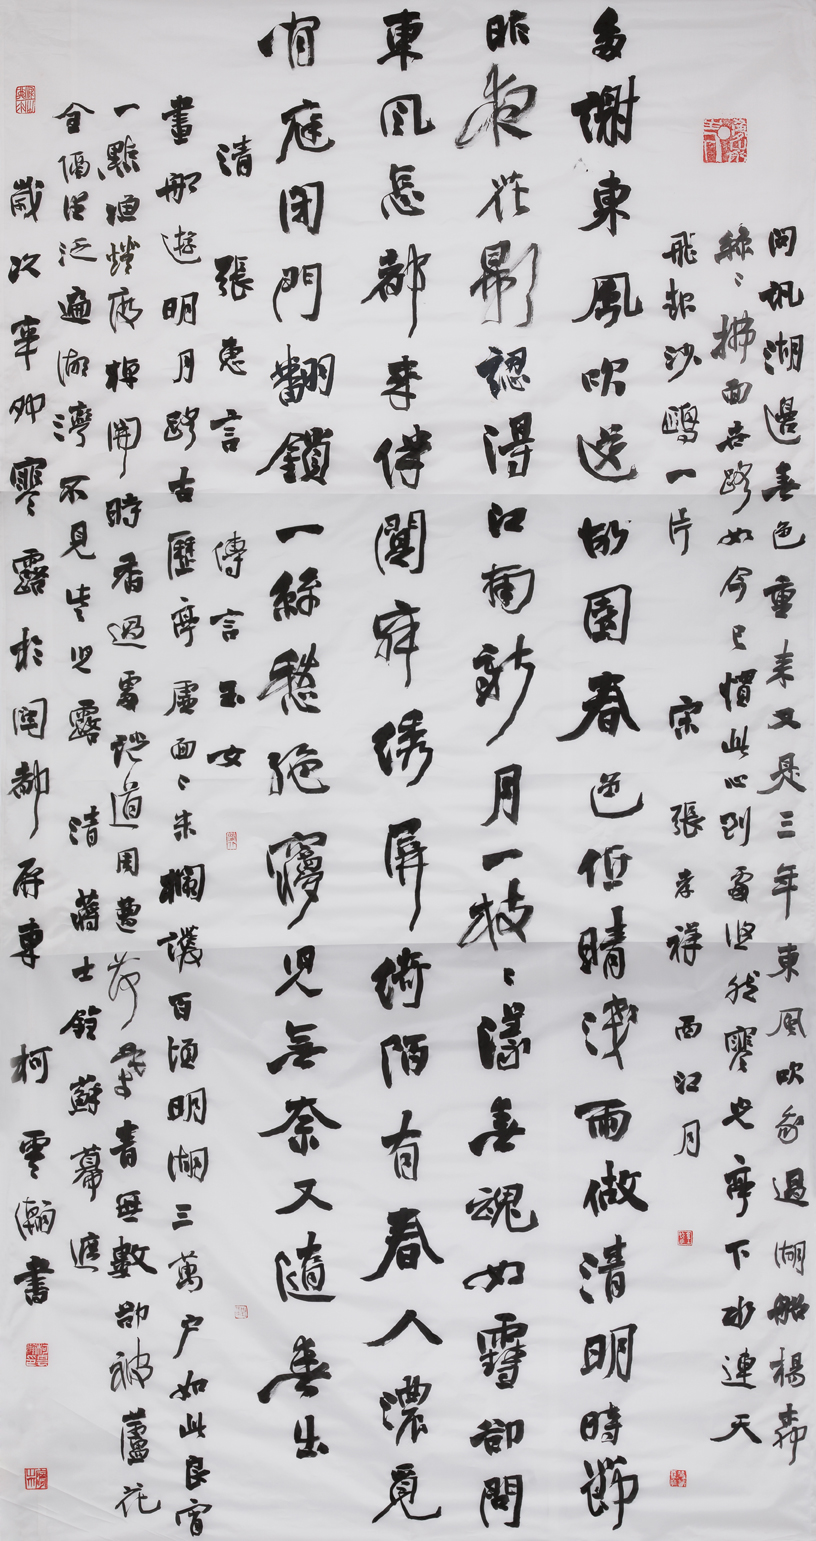 問訊湖邊春色重來又是三年東風吹我過湖船楊柳
絲〻拂面世路如今已慣此心到處悠然寒光亭下水連天
飛起沙鷗一片 宋 張孝祥 西江月
多謝東風吹送故園春色低晴淺雨做清明時節
昨夜花影認得江南新月一枝〻漾春魂如雪卻問
東風怎都來伴闃寂繡屏綺陌有春人濃覓
閒庭閉門翻鎖一絲愁絕夢兒無奈又隨春出
清 張惠言 傳言玉女
畫船遊明月路古歷亭虛面〻朱欄護百頃明湖三萬戶如此良宵
一點漁燈度棹開時香過處說道周遭荷葉青無數卻被蘆花
全隔住泛遍湖灣不見些兒露 清 蔣士銓 蘇幕遮
歲次辛卯寒露於閩都 柯雲瀚書